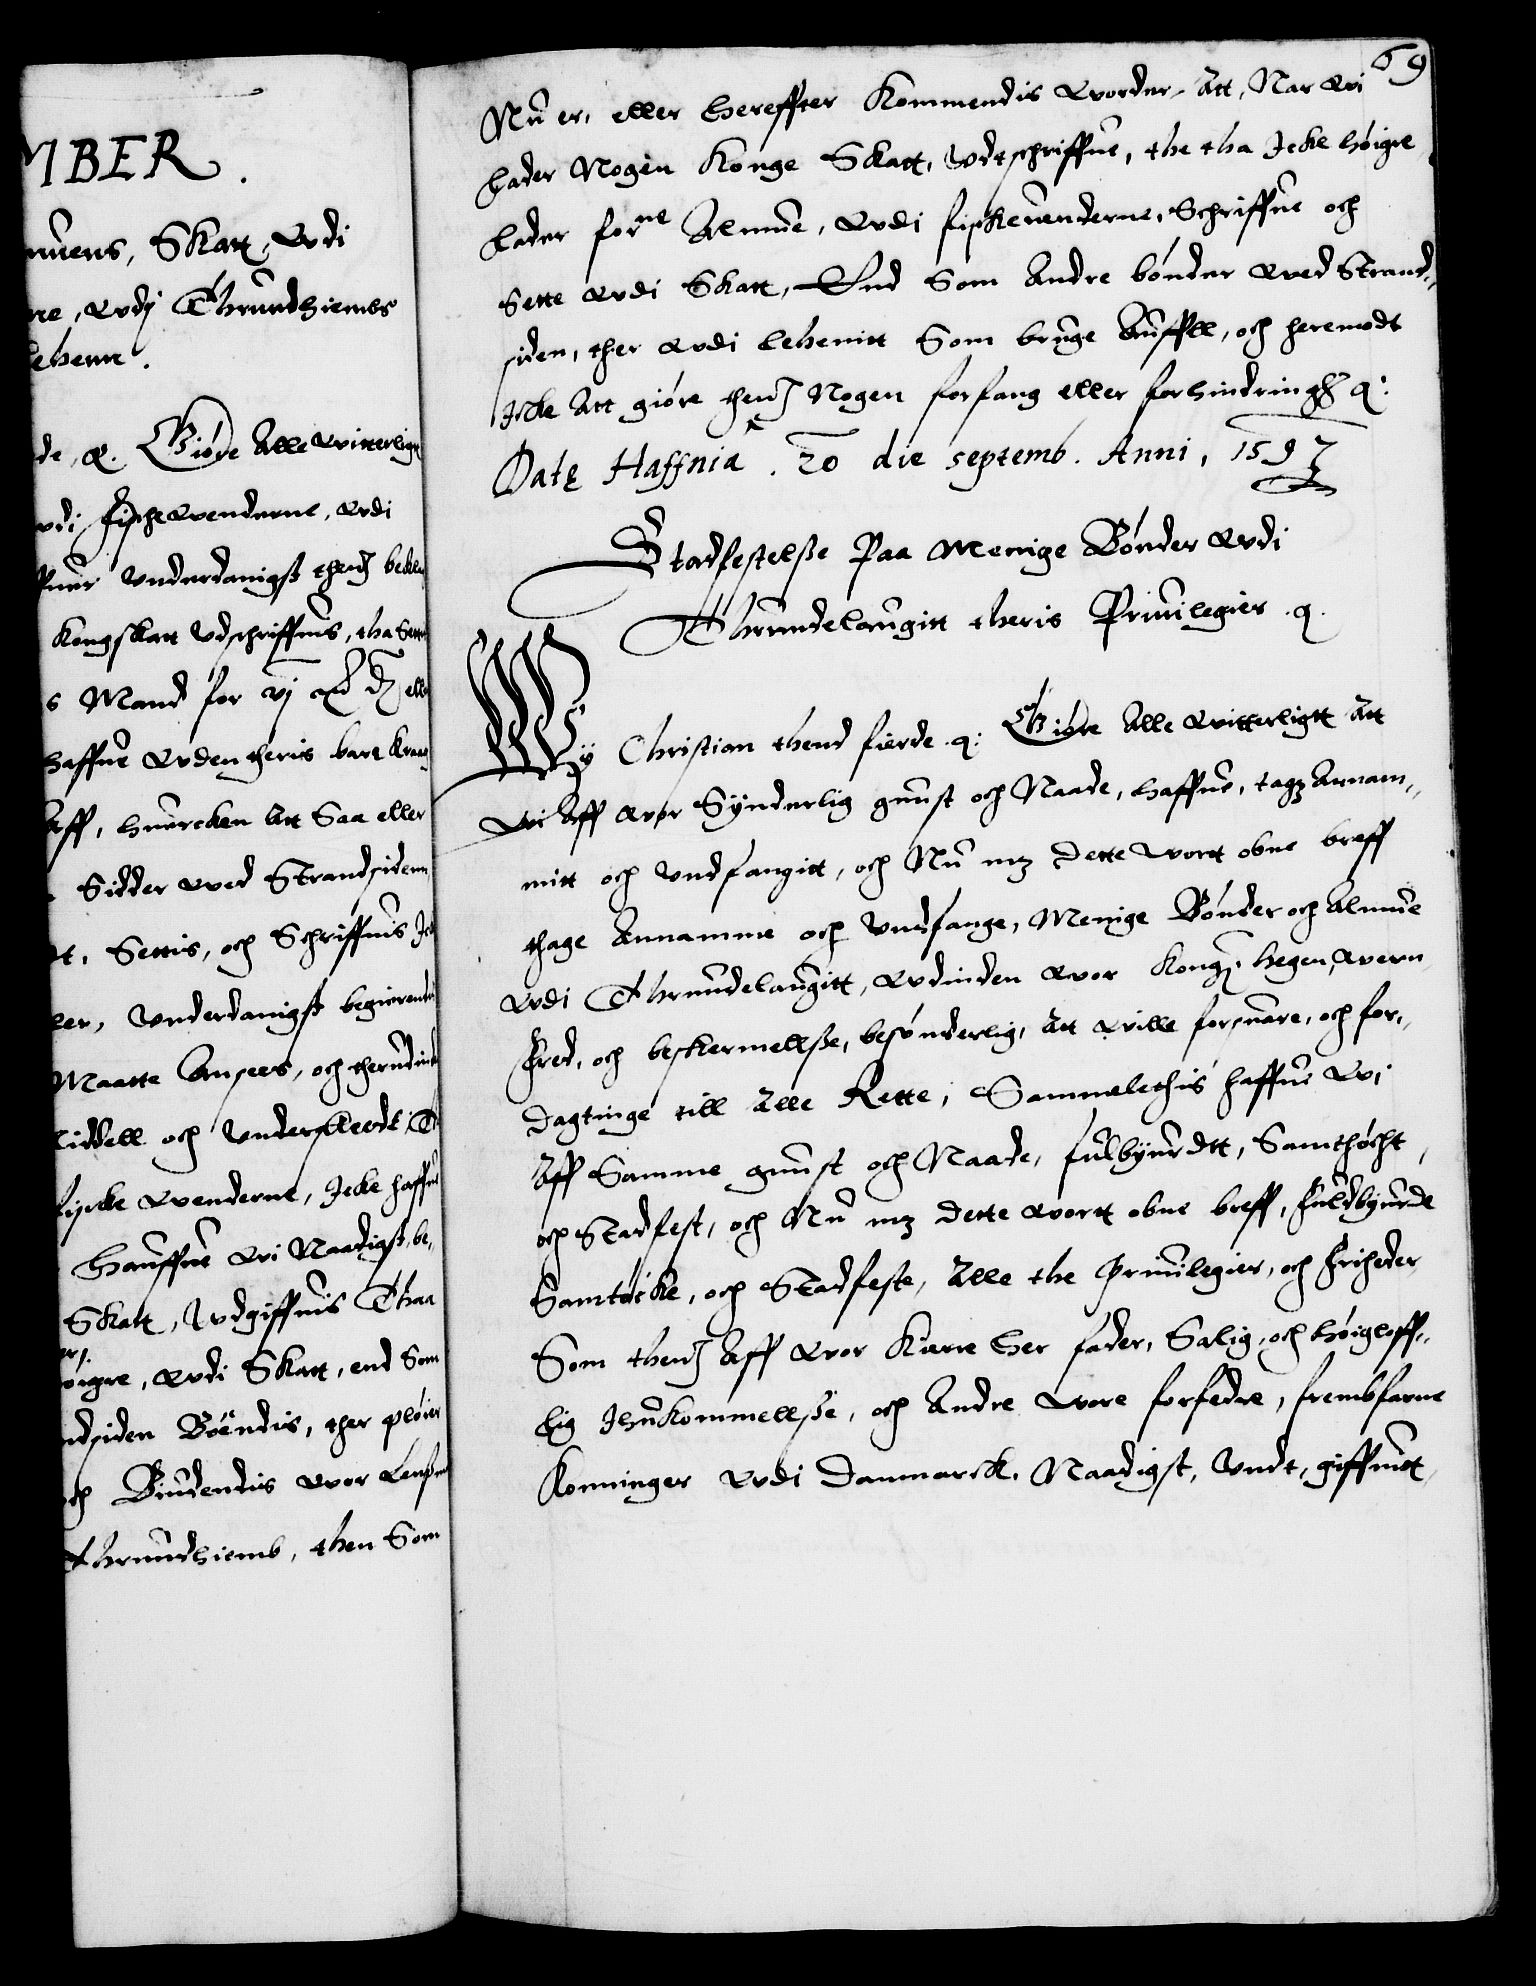 MBER.
nuens, Skatt, Wdi
re, wdj Thrundhiembs
lehenn.
de, q. Giöre Alle witterligt
wdi fischewenderne, wdi
Kongskatt Udschriffuis, tha Sette
s Mand for vj
haffue Uden theris bare
Aff, huercken Att Saa eller
Sidder wed Strandsidenn
t, Settis, och Schriffuis
ler, Underdanigst begierendis
Maatte Ansees, och therudinden
Middell och Underscheedt
fiscke wenderne, Icke haffue
Haffue wi Naadigst, be,,
Skatt, Udgiffuis Thaa
höigre, wdi Skatt, end Som
ndsiden Böendis, ther plöier
ch Biudendis wor Lensm
Thrundhiemb, then Som
69
Nu er, eller hereffter Kommendis worder, Att, Nar wi
lader Nogen Konge Skatt, Udtschriffue, the tha Icke höigre
lader forne Almue, wdi fischeuenderne, Schriffue och
Sette wdi Skatt, End Som Andre bönder wed Strand,,
siden, ther wdi Lehenitt Som bruge Auffll, och heremodt
Icke Att giöre thenn̄ Nogen forfang eller forhindring q:
Datę Haffnia. 20 die septemb. Anni, 1597
Stadfestelße Paa Menige Bönder wdi
Thrundelaugitt theris Priuilegier. q.
Wÿ Christian thend fierde. q: Giöre Alle witterligtt Att
wi Aff wor Sÿnderlig gunst och Naade, haffue, tagz Annam,,
mitt och Undfangitt, och Nu mz dette wort obne breff
thage Annamme och Undfange, Menige Bönder och Almue
wdi Thrundelaugitt, wdinden wor Kong: hegen, wern
Fred, och beskermellße, besönderlig, Att wille forsuare, och for,,
dagtinge till Alle Rette, Sammelethis haffue wi
Aff Samme gunst och Naade, fulbyurdtt, Samthöcht,
och Stadfest, och Nu mz dette wortt obne breff, fuldbyurde
Samtöcke, och Stadfeste, Alle the Priuilegier, och Friheder
Som thenn̄ Aff wor Kiere her fader, Salig, och höigloff,,
lig Ihukommellße, och Andre wore forfedre, frembfarne
Konninger wdi Danmarck, Naadigst, Undt, giffuitt,